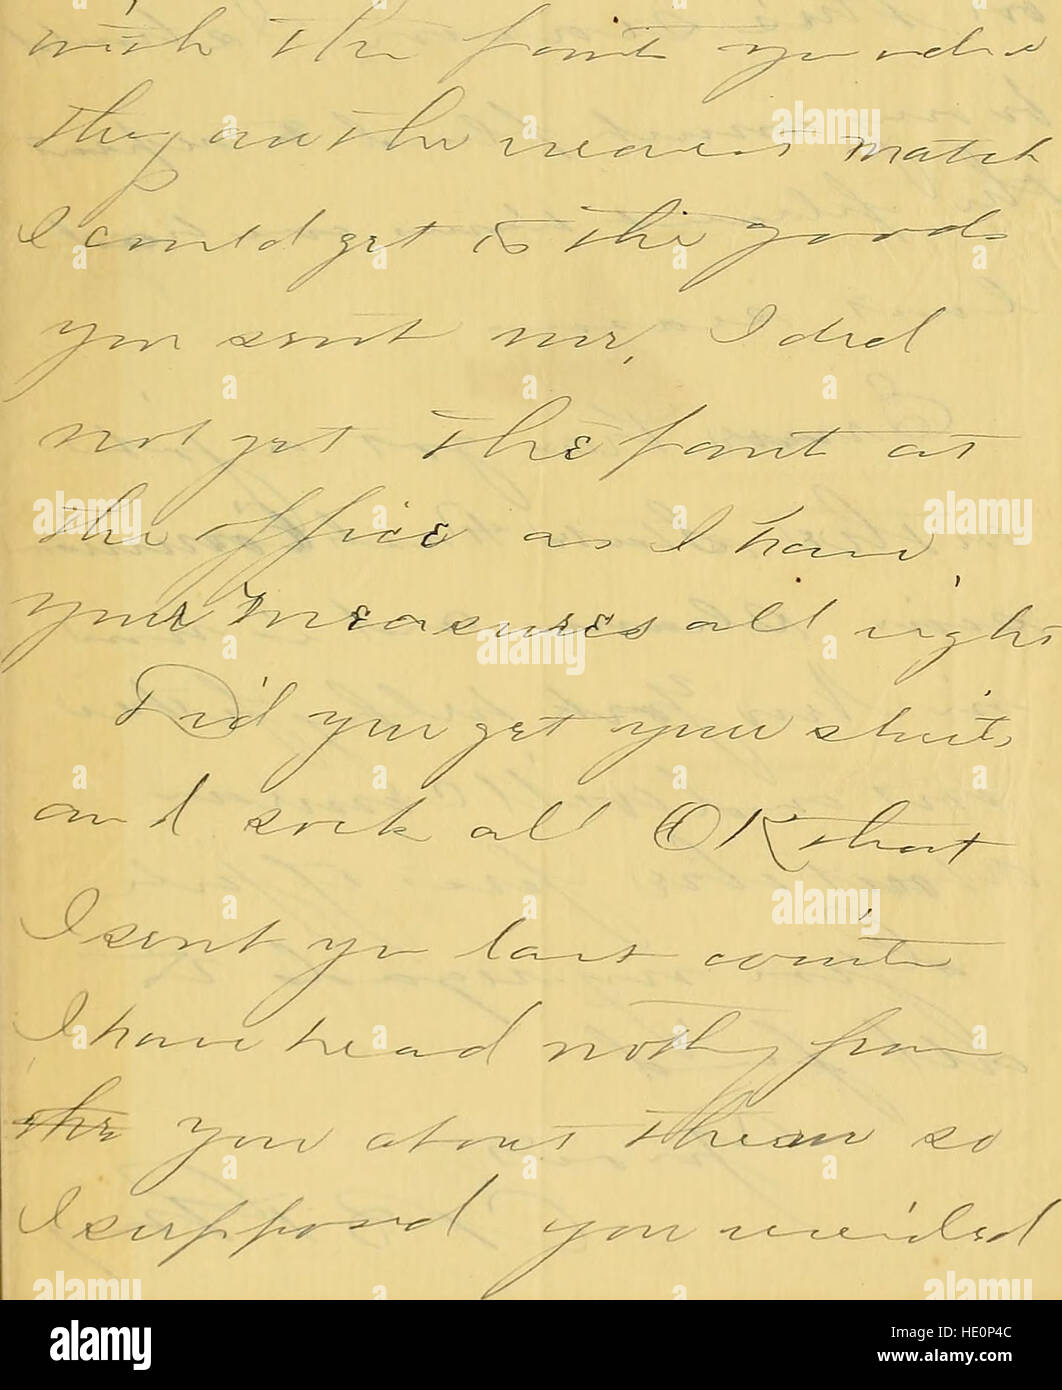 with the pants you
they are the nearest match
I could get to the goods
you sent me, I did
not get the pant at
the office as I have
your measures all right
Did you get your shirts
and sock all OK that
I sent you last winter
I have head nothing from
the you about them so
I supposed you received
alamy
Image ID: HE0P4C
www.alamy.com